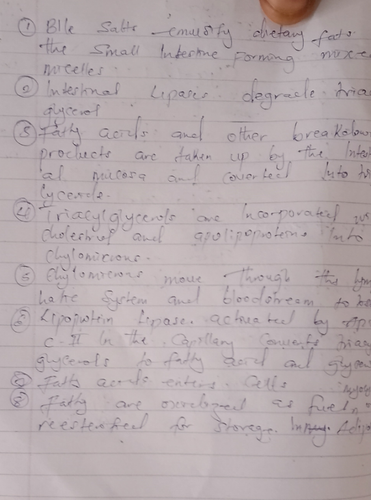 ① Bile Salts emulsify dietary fats
the Small Intestine Forming mixe
micelles.
② Intestinal Lipases degrade Tria
glycerol
③ Fatty acids and other breakdow
products are taken up by the Inte
al mucosa and converted Into
lycerols.
④ Triacylglycerols are Incorporated
cholestrol and apolipoproteins Into
chylomicrons.
⑤ Chylomicrons move Through the
hatic System and bloodstream to
⑥ Lipoprotein Lipase activated by
C-II In the Capillary Converts
glycerols to fatty acid and
⑦ Fatty acids enters Cells
⑧ Fatty are as fuel
reesterified for Storage. In Adip